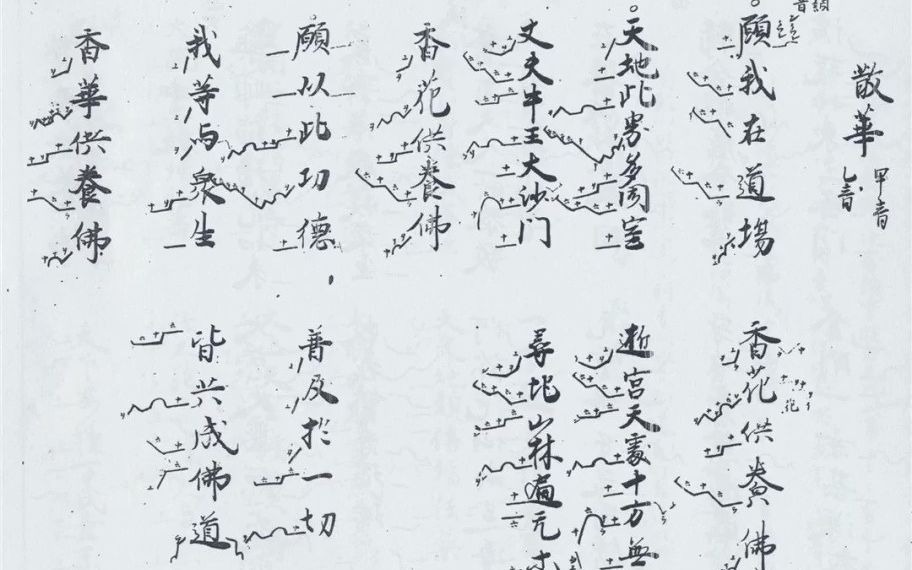 散華 甲音 乙音
願我在道場 香花供養佛
花
天地此界多聞室 逝宮天處十方無
丈夫牛王大沙门 尋地山林遍无
香花供養佛
願以此功德 普及於一切
我等与衆生 皆共成佛道
香華供養佛